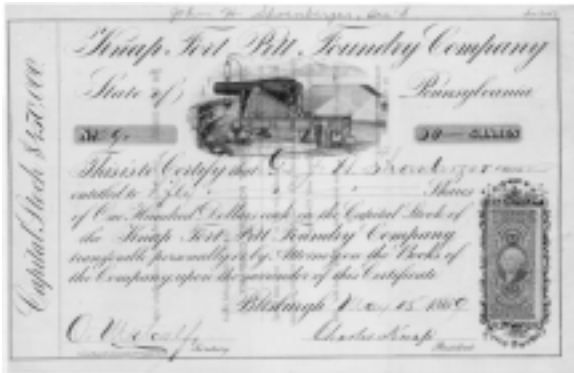 John H. Shoenberger
Knap Fort Pitt Foundry Company
State of
Pennsylvania
No. 9.
50 Shares
This is to Certify that J H Shoenberger
entitled to Fifty Shares
of One Hundred Dollars each in the Capital Stock of
the Knap Fort Pitt Foundry Company
transferable personally or by Attorney on the Books of
the Company upon the surrender of this Certificate
Pittsburgh May 15 1869
O. Metcalf
Secretary
Charles Knap
President
Capital Stock $450,000.